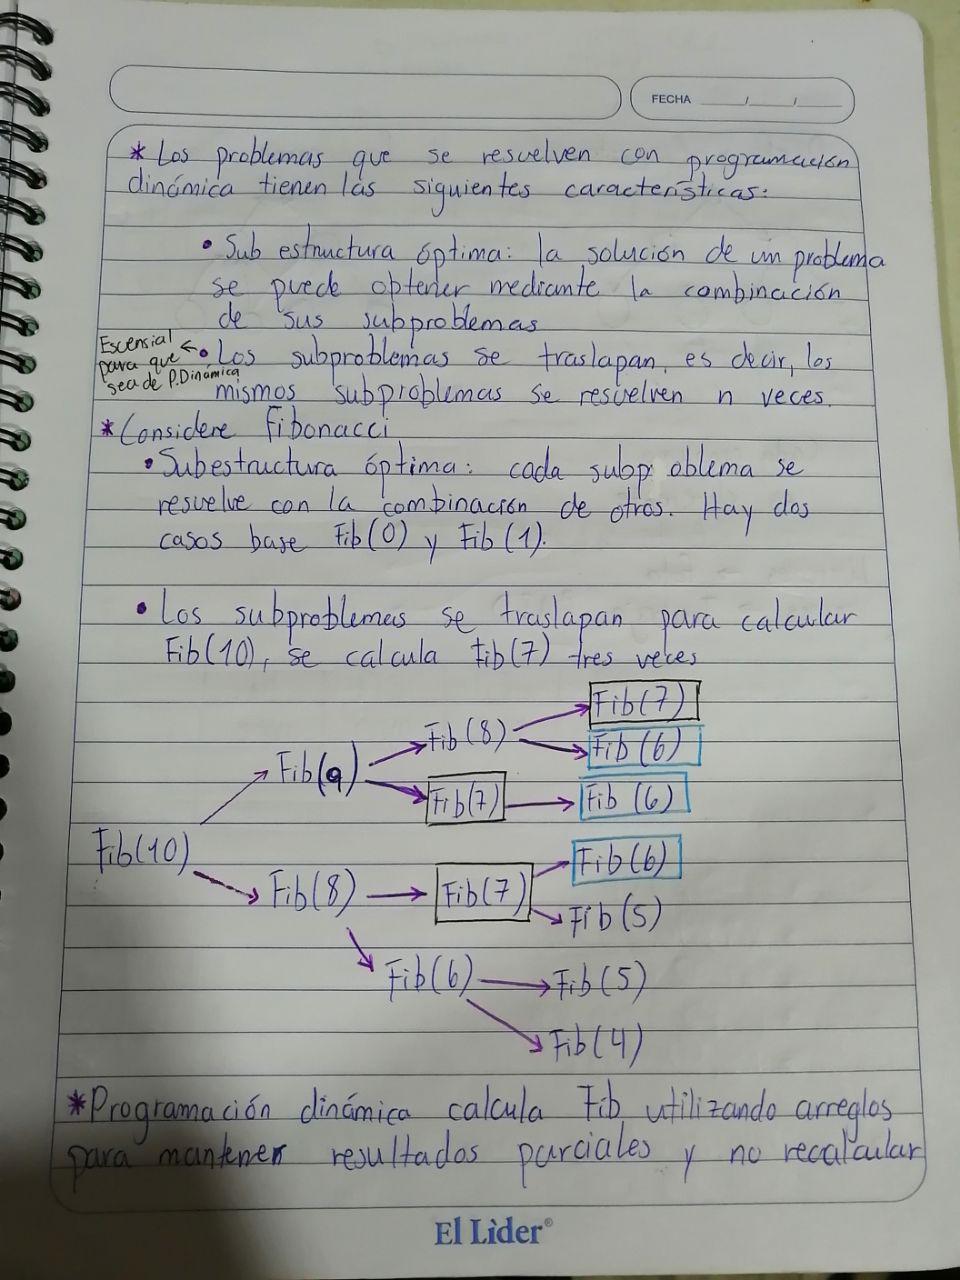 FECHA
* Los problemas que se resuelven con programación
dinámica tienen las siguientes características:
• Sub estructura óptima: la solución de un problema
se puede obtener mediante la combinación
de sus subproblemas
Escensial
para que
sea de P.Dinámica
• Los subproblemas se traslapan, es decir, los
mismos subproblemas se resuelven n veces.
* Considere Fibonacci
• Subestructura óptima: cada subpr oblema se
resuelve con la combinación de otros. Hay dos
casos base Fib(0) y Fib(1).
• Los subproblemas se traslapan para calcular
Fib(10), se calcula Fib(7) tres veces
Fib(7)
Fib(8)
Fib(6)
Fib(9)
Fib(7)
Fib(6)
Fib(10)
Fib(6)
Fib(8)
Fib(7)
Fib(5)
Fib(6)
Fib(5)
Fib(4)
* Programación dinámica calcula Fib utilizando arreglos
para mantener resultados parciales y no recalcular
El Lìder®